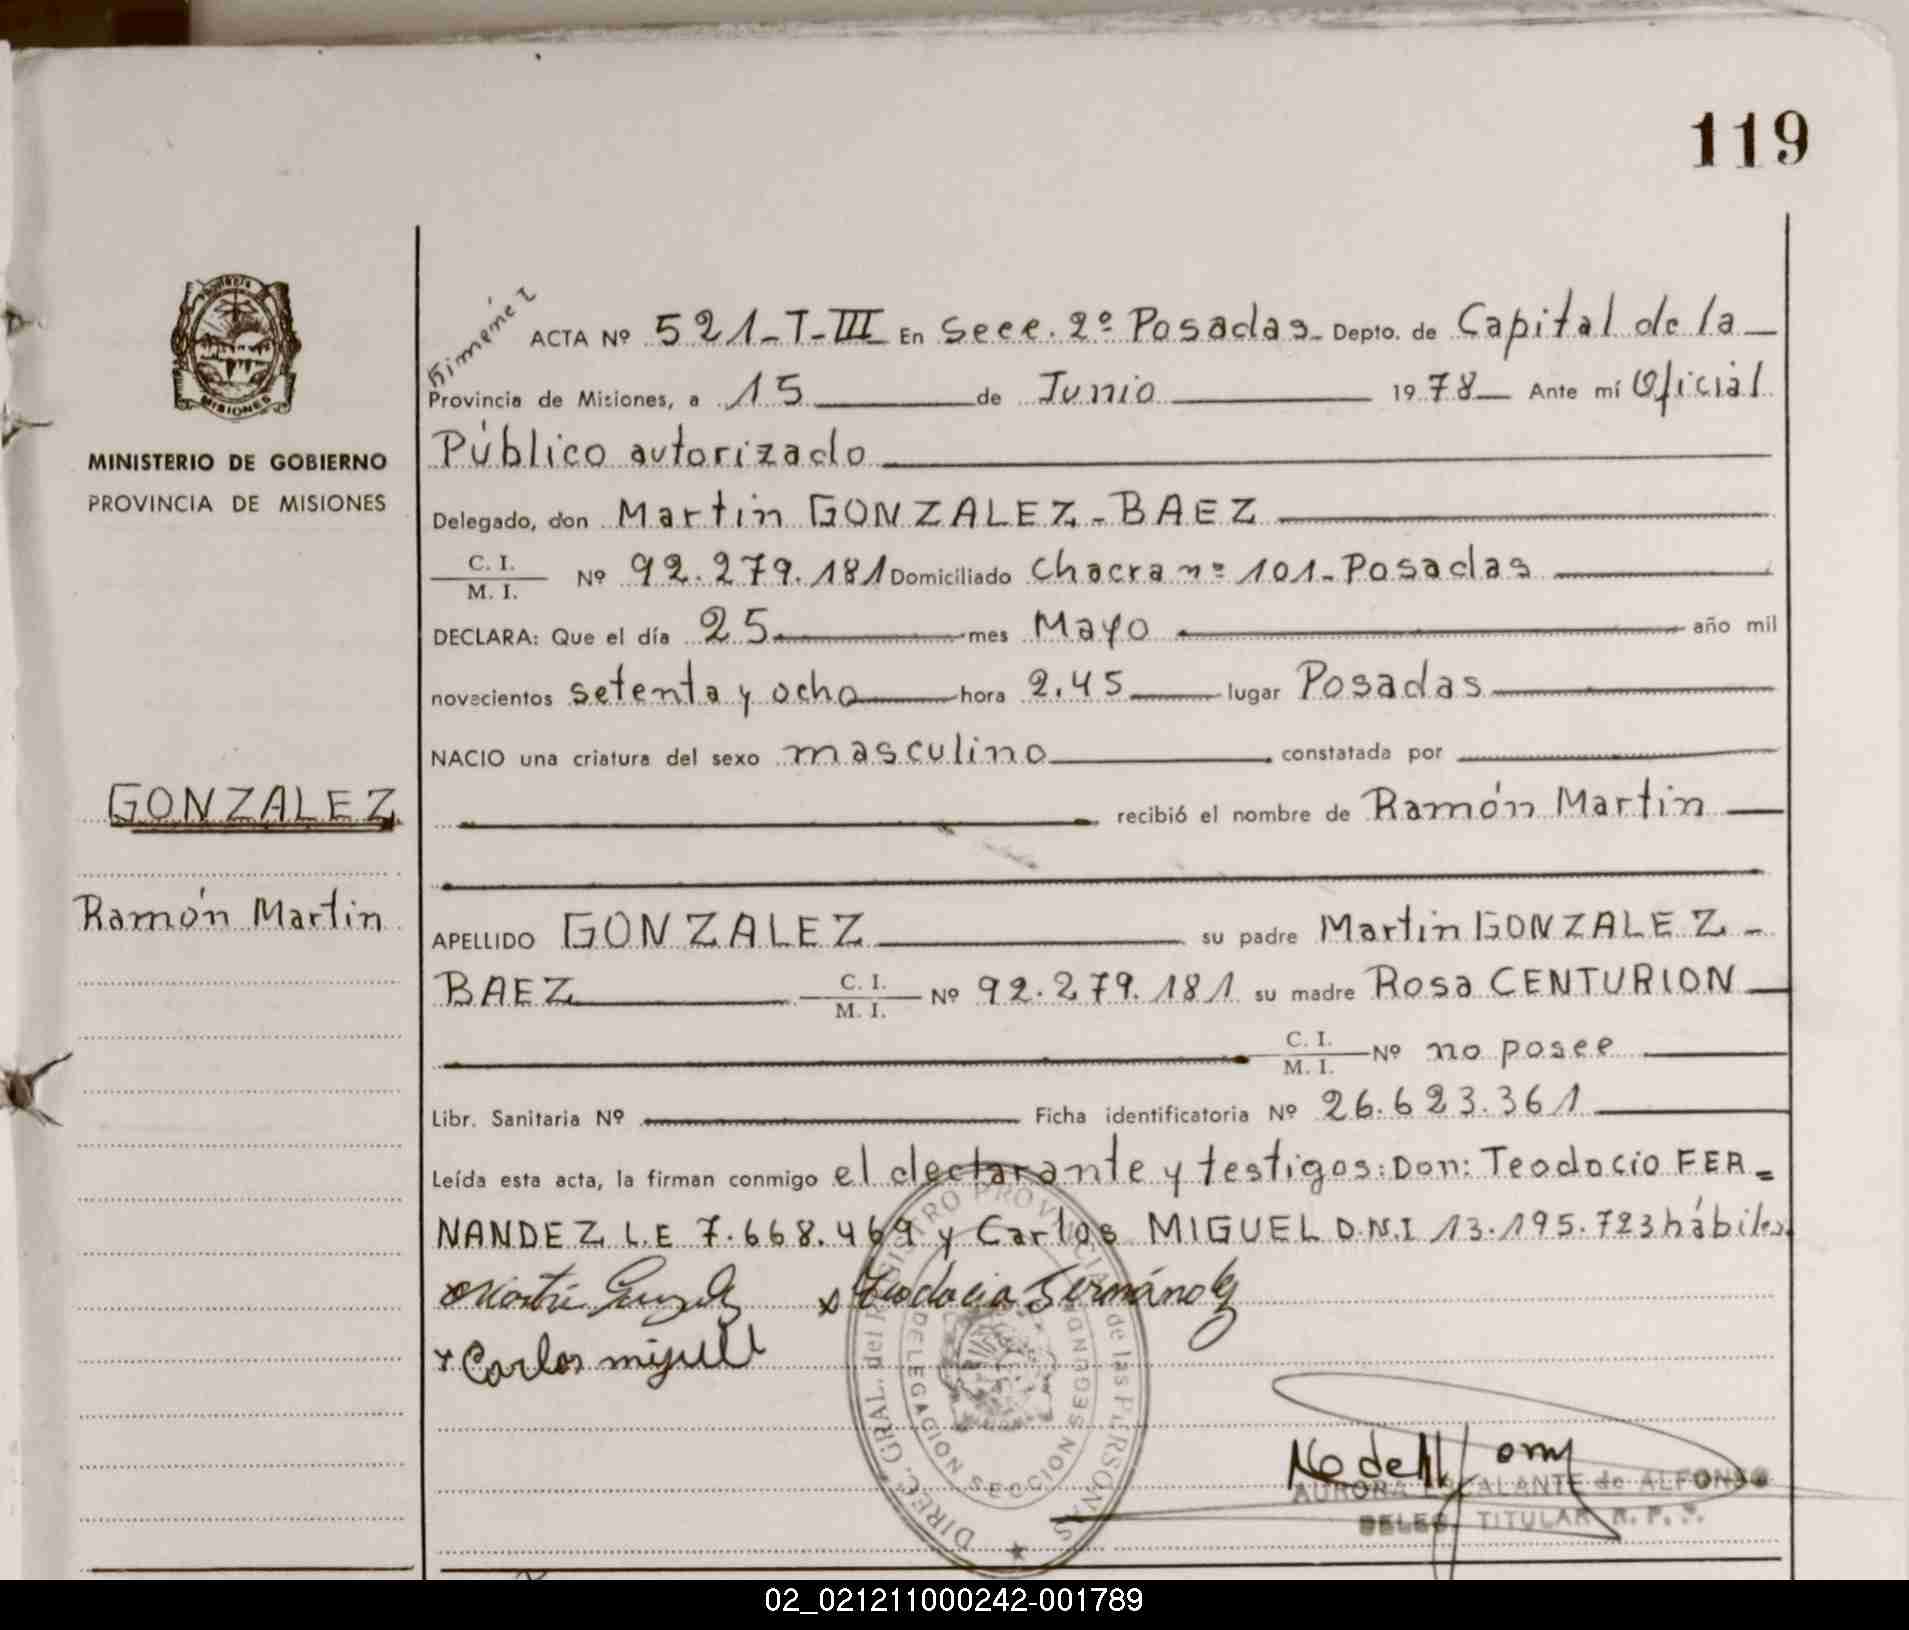 119
MISIONES
MINISTERIO DE GOBIERNO
PROVINCIA DE MISIONES
GONZALEZ
Ramón Martin
ACTA Nº 521-T-III En Secc. 2º Posadas- Depto. de Capital de la
Provincia de Misiones, a 15 de Junio 1978 Ante mí Oficial
Público autorizado
Delegado, don Martin GONZALEZ-BAEZ
C. I.
M. I. Nº 92.279.181 Domiciliado Chacra nº 101-Posadas
DECLARA: Que el día 25 mes Mayo año mil
novecientos setenta y ocho hora 2.45 lugar Posadas
NACIO una criatura del sexo masculino constatada por
recibió el nombre de Ramón Martin
APELLIDO GONZALEZ su padre Martin GONZALEZ-
BAEZ C. I. M. I. Nº 92.279.181 su madre Rosa CENTURION
C. I. M. I. Nº no posee
Libr. Sanitaria Nº Ficha identificatoria Nº 26.623.361
Leída esta acta, la firman conmigo el declarante y testigos: Don: Teodocio FER=
NANDEZ L.E 7.668.469 y Carlos MIGUEL D.N.I 13.195.723 hábiles.
Teodocio Fernández
Carlos miguel
DIREC. GRAL. del REGISTRO PROVINCIAL de las PERSONAS
DELEGACION SECCION SEGUNDA
AURORA ESCALANTE de ALFONSO
DELEG. TITULAR R. P. P.
02_021211000242-001789